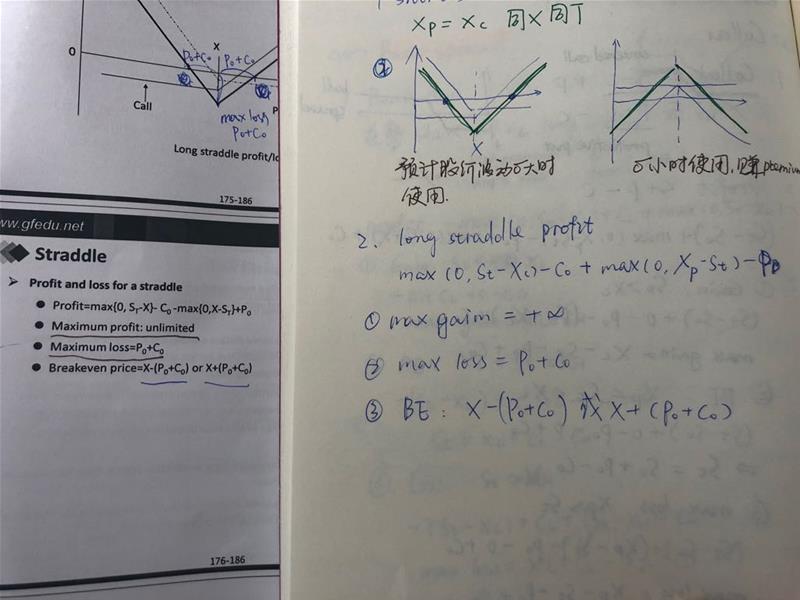 X
P₀+C₀
P₀+C₀
0
Call
max loss
P₀+C₀
Long straddle profit/lo
175-186
ww.gfedu.net
Straddle
Profit and loss for a straddle
Profit=max{0, Sᴛ-X}- C₀ -max{0,X-Sᴛ}+P₀
Maximum profit: unlimited
Maximum loss=P₀+C₀
Breakeven price=X-(P₀+C₀) or X+(P₀+C₀)
176-186
Xp = Xc 同X同T
②
X
预计股价波动大时
使用.
小时使用.赚premium
2. long straddle profit
max(0, St-Xc)-C₀ + max(0, Xp-St)-P₀
① max gaim = +∞
② max loss = P₀+C₀
③ BE: X-(P₀+C₀) 或 X+(P₀+C₀)